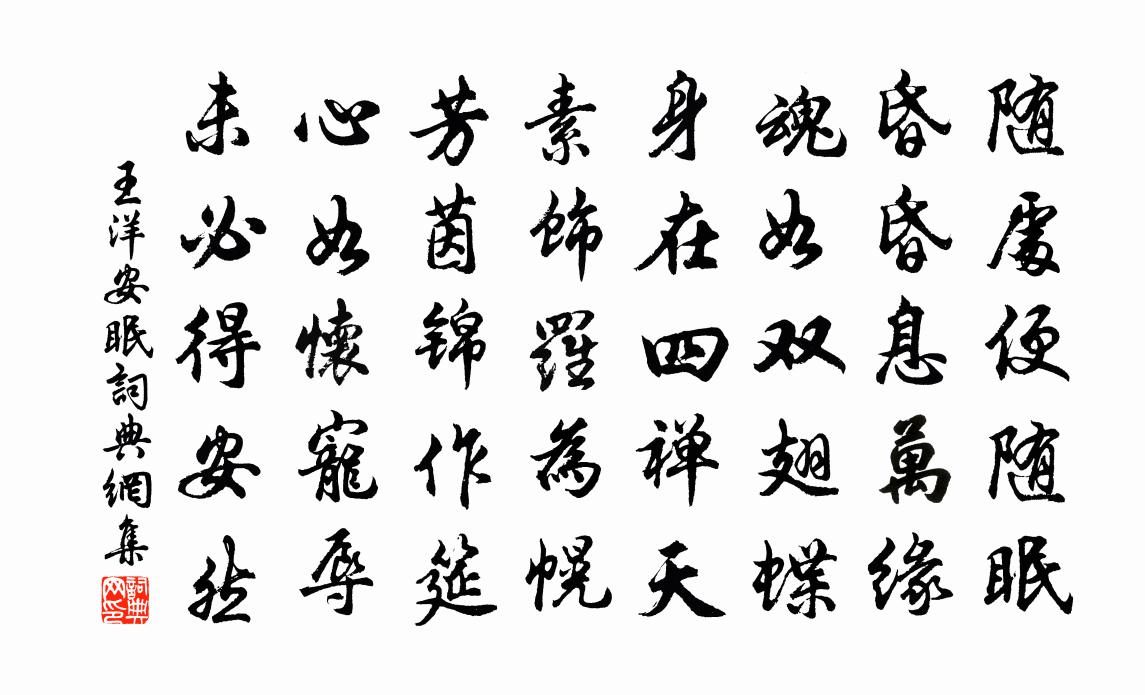 随處便随眠
昏昏息萬緣
魂如双翅蝶
身在四禅天
素飾羅為幌
芳茵锦作筵
心如懷寵辱
未必得安然
王洋安眠詞典網集
詞典网印